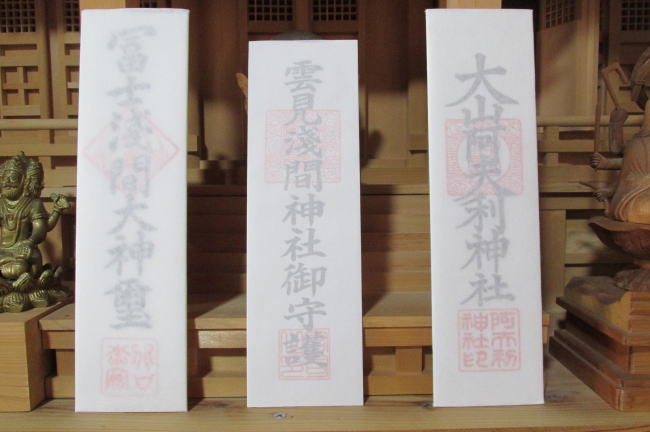 冨士淺間大神璽
雲見淺間神社御守護
大山阿夫利神社
阿夫利
神社印